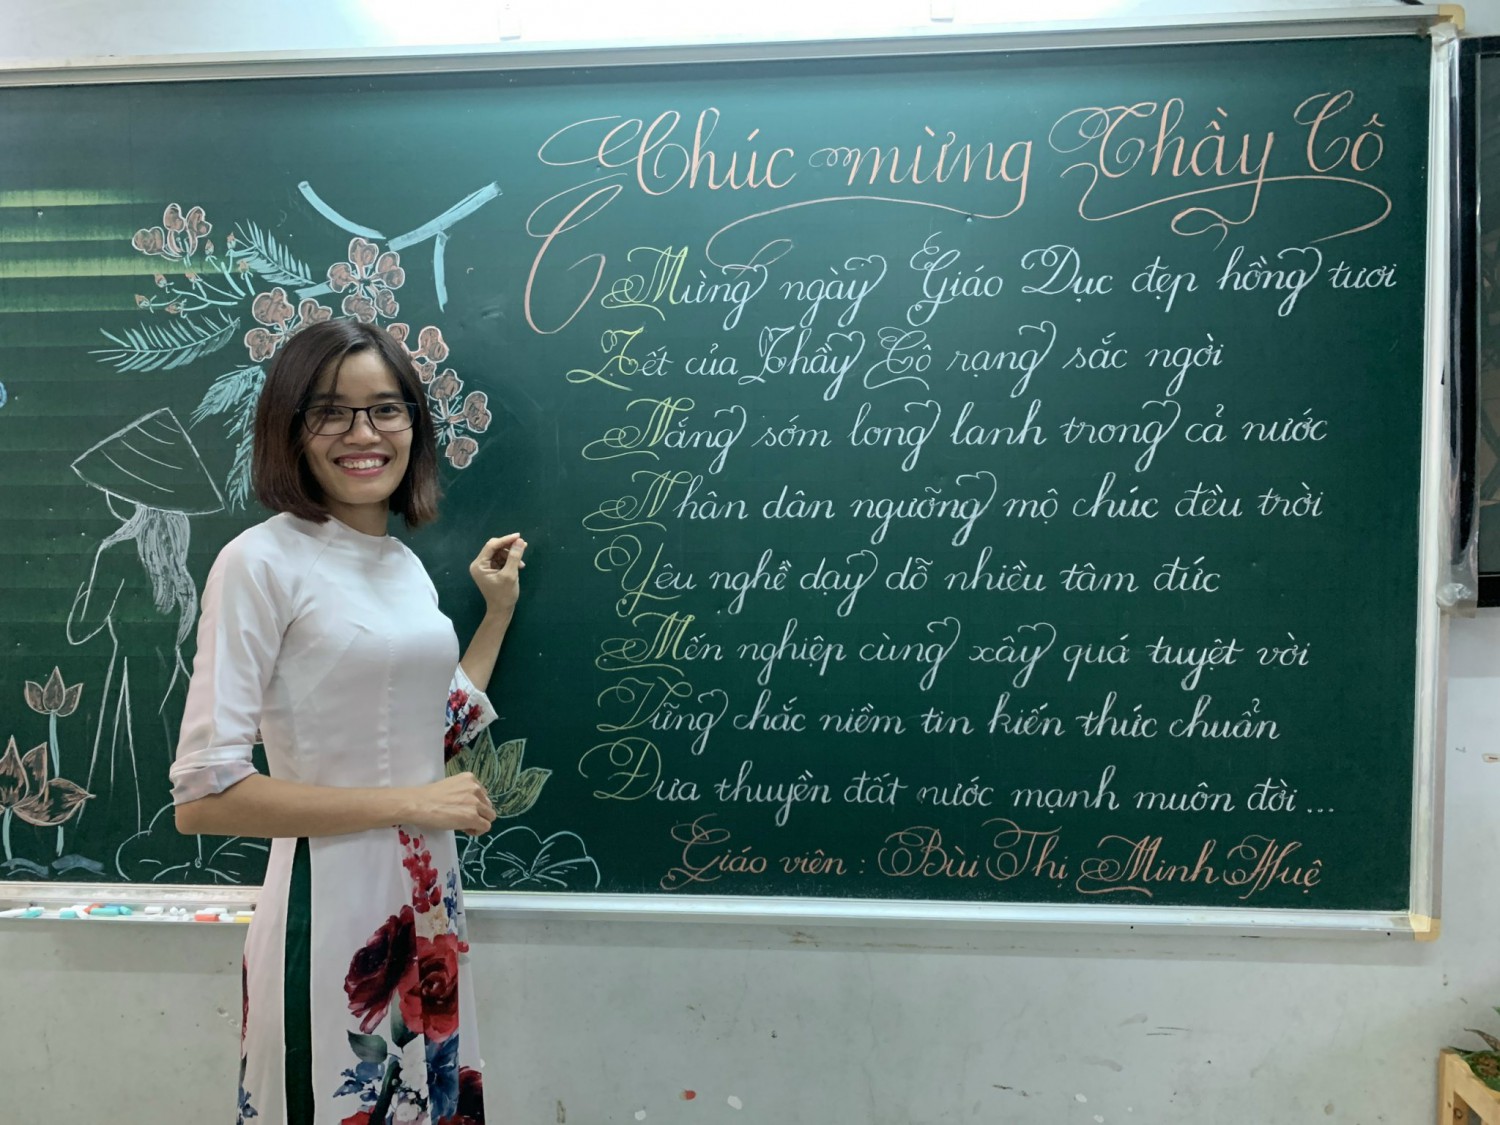 Chúc mừng Thầy Cô
Mừng ngày Giáo Dục đẹp hồng tươi
Tết của Thầy Cô rạng sắc ngời
Nắng sớm long lanh trong cả nước
Nhân dân ngưỡng mộ chúc đều trời
Yêu nghề dạy dỗ nhiều tâm đức
Mến nghiệp cùng xây quá tuyệt vời
Vững chắc niềm tin kiến thức chuẩn
Đưa thuyền đất nước mạnh muôn đời...
Giáo viên : Bùi Thị Minh Huệ